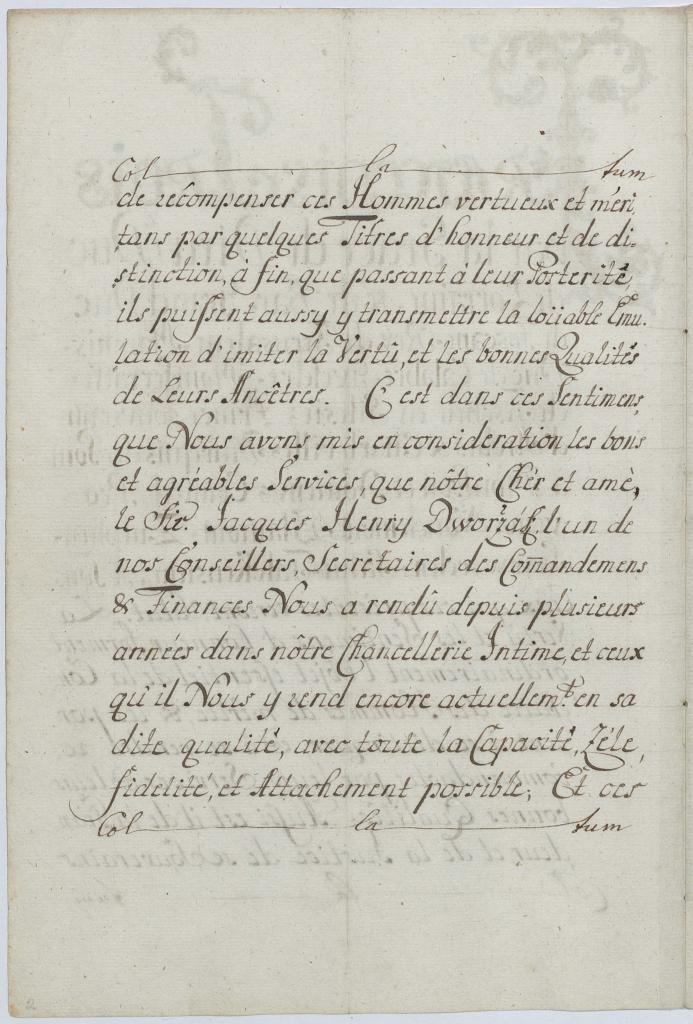 Col la tum
de recompenser ces Hommes vertueux et meri,
tans par quelques Titres d'honneur et de di-
stinction, à fin, que passant à leur Posterité,
ils puissent aussy y transmettre la loüable Emu-
lation d'imiter la Vertû, et les bonnes Qualités
de Leurs Ancêtres. C'est dans ces Sentimens,
que Nous avons mis en consideration les bons
et agréables Services, que nôtre Chér et amè,
le Sir. Jacques Henry Dworzák, l'un de
nos Conseillers, Secretaires des Com̄andemens
& Finances Nous a rendû depuis plusieurs
années dans nôtre Chancellerie Intime, et ceux
qu'il Nous y rend encore actuellemt. en sa
dite qualité, avec toute la Capacité, Zéle,
fidelité, et Attachement possible; Et ces
Col la tum
2